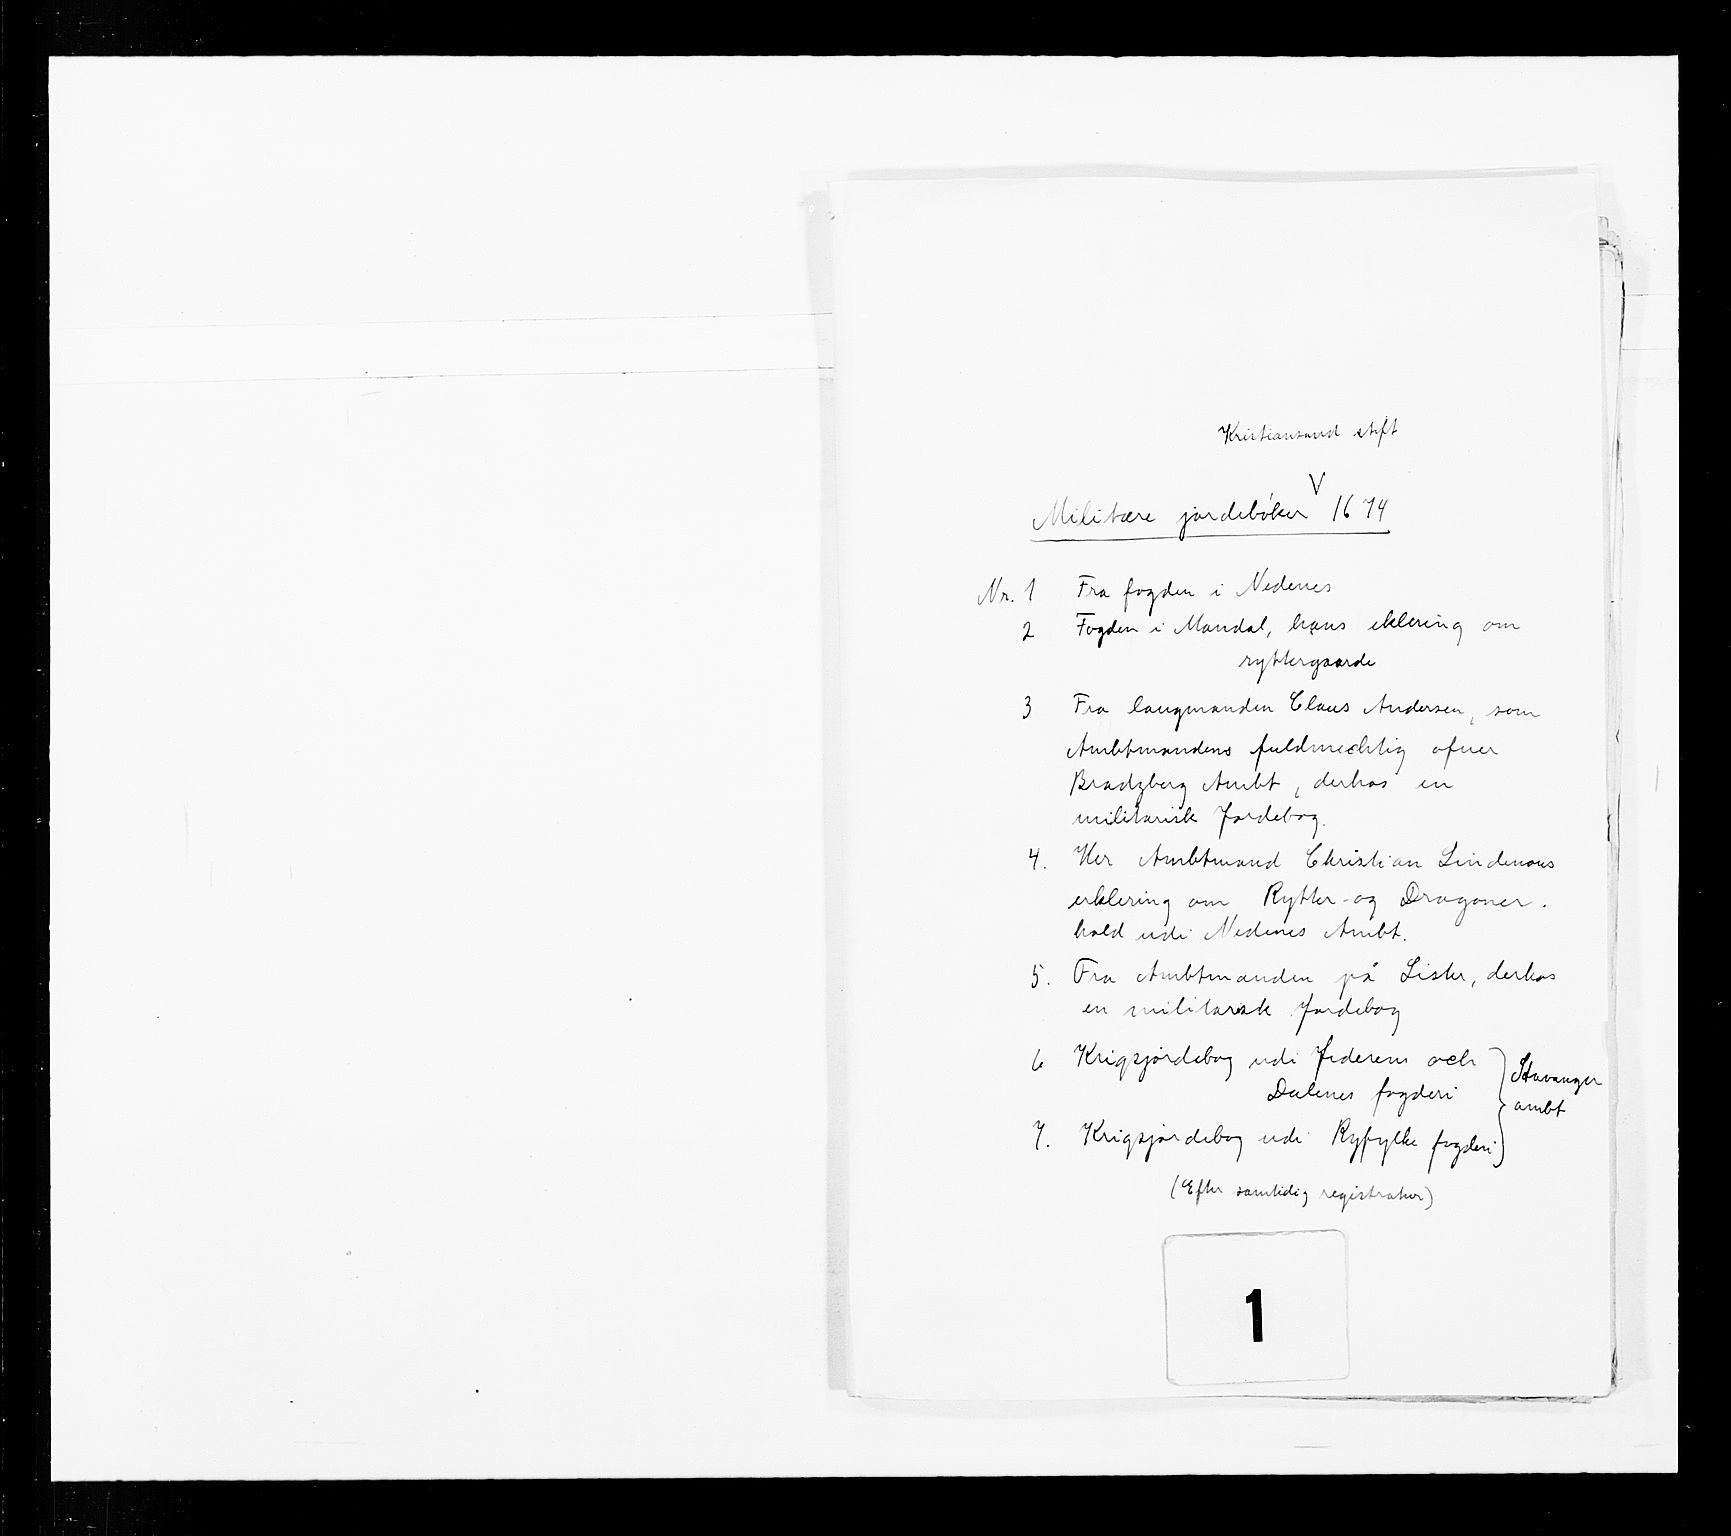 Kristiansand stift
V
Militære jordebøker 1674
Nr. 1 Fra fogden i Nedenes
2 Fogden i Mandal, hans eklering om
ryttergaarde
3 Fra laugmanden Claus Andersen, som
Ambtmandens fuldmechtig ofuer
Bradzberg Ambt, derhos en
militarisk Jordebog.
4. Her Ambtmand Christian Lindenous
erklering om Rytter- og Dragoner-
hold udi Nedenes Ambt.
5. Fra Ambtmanden på Lister, derhos
en militarisk Jordebog
6 Krigsjordebog udi Jederens och
Dalenes fogderi
Stavanger
ambt
7. Krigsjordebog udi Ryfylke fogderi
(Efter samtidig registratur)
1